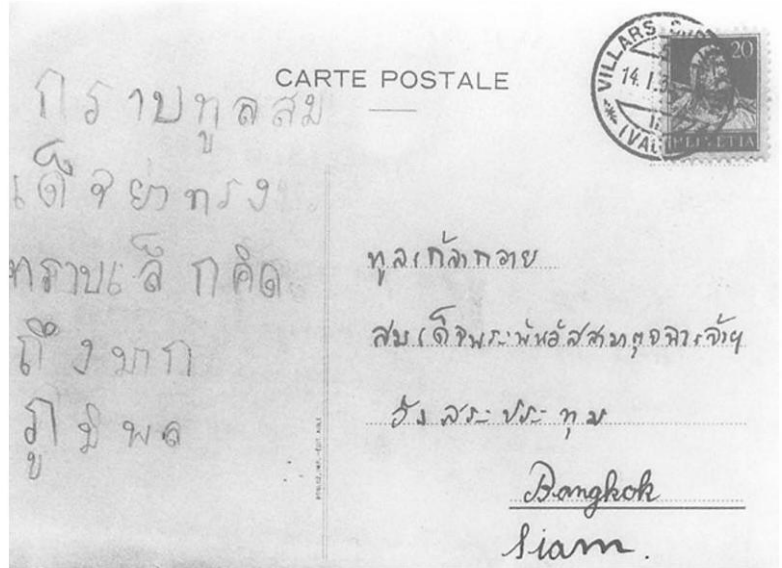 CARTE POSTALE
VILLARS
14.I.3
20
HELVETIA
กราบทูลสม
เด็จย่าทรง
ทราบเล็กคิด
ถึงมาก
ภูมิพล
ทูลเกล้าถวาย
สมเด็จพระพันวัสสามาตุจฉาเจ้าฯ
วังสระปทุม
Bangkok
Siam.